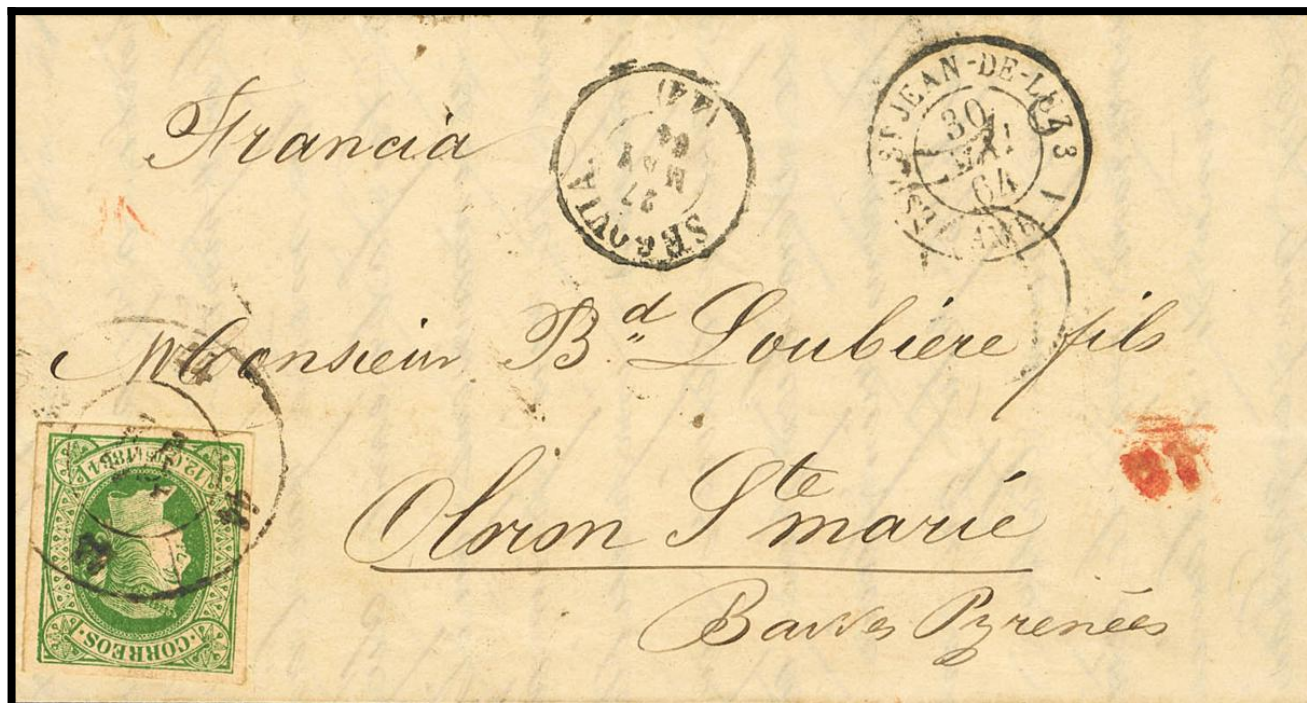 Francia
SEGOVIA
27
MAY
64
(44)
ST JEAN-DE-LUZ 3
30
MAI
64
Monsieur Bd Loubière fils
Oloron Ste marie
Basses Pyrenées
12 CUOS 1864
CORREOS